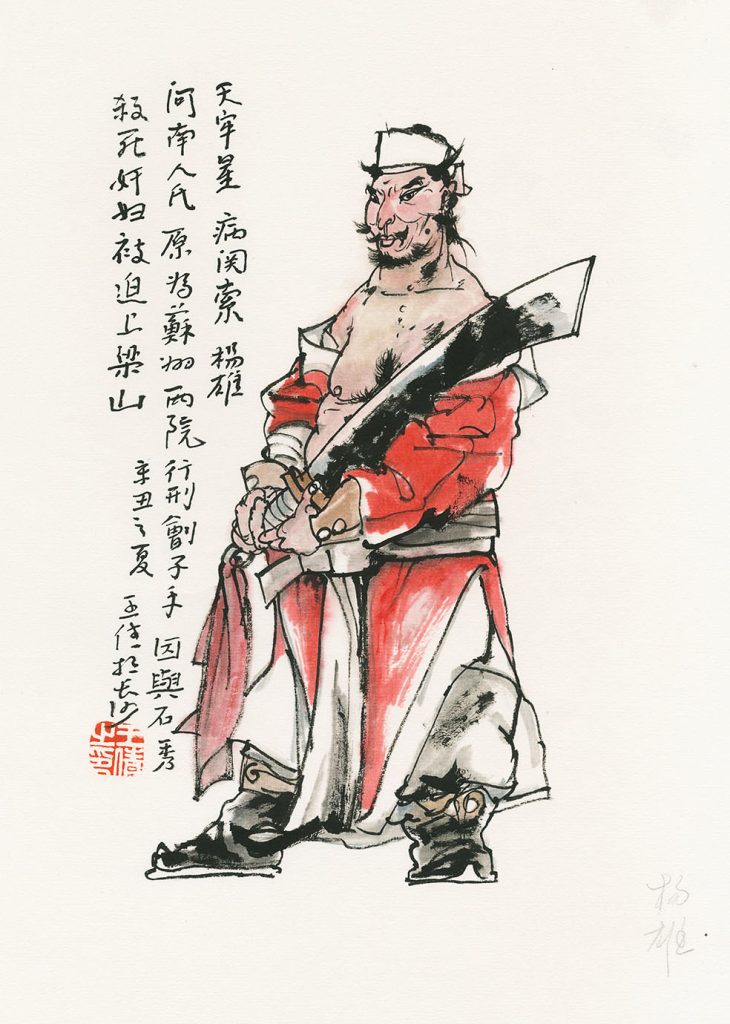 天牢星 病関索 杨雄
河南人氏 原为蘇州两院行刑劊子手 因與石秀
殺死奸妇被迫上梁山
辛丑之夏 王倩於长沙
杨雄